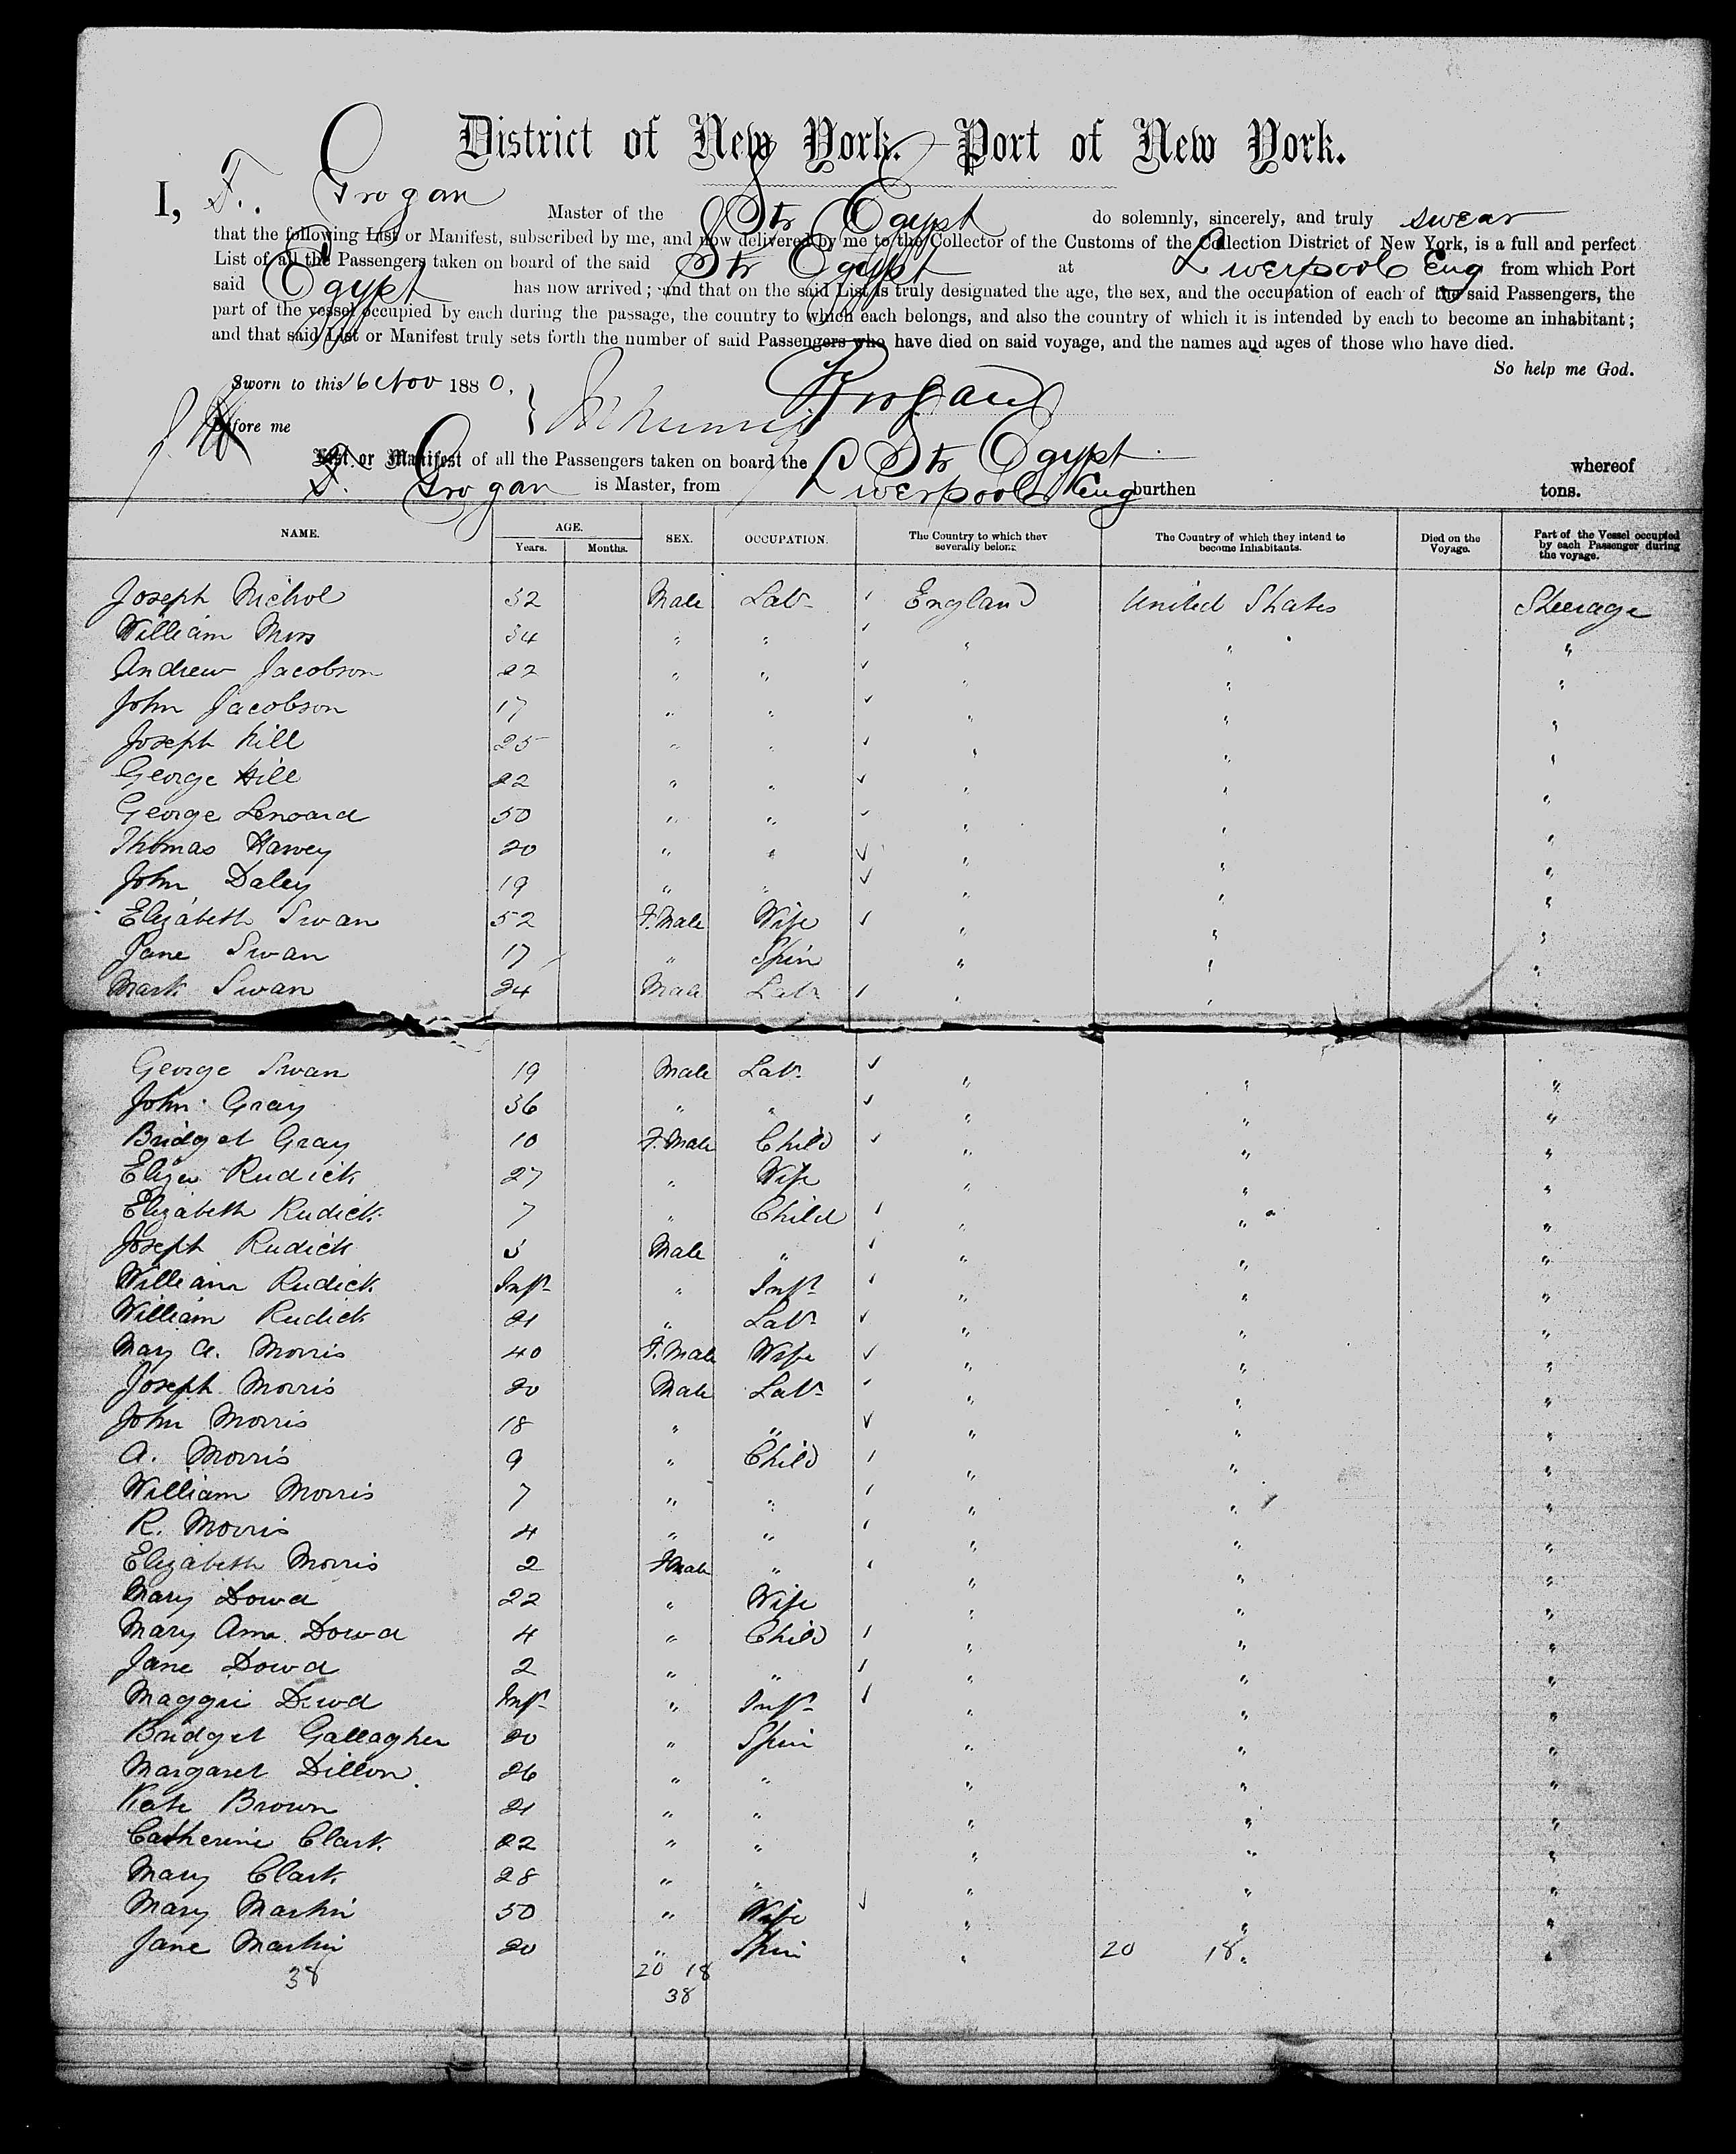 District of New York. Port of New York.
I, F. Grogan Master of the Str Egypt do solemnly, sincerely, and truly swear
that the following List or Manifest, subscribed by me, and now delivered by me to the Collector of the Customs of the Collection District of New York, is a full and perfect
List of all the Passengers taken on board of the said Str Egypt at Liverpool Eng from which Port
said Egypt has now arrived; and that on the said List is truly designated the age, the sex, and the occupation of each of the said Passengers, the
part of the vessel occupied by each during the passage, the country to which each belongs, and also the country of which it is intended by each to become an inhabitant;
and that said List or Manifest truly sets forth the number of said Passengers who have died on said voyage, and the names and ages of those who have died.
So help me God.
Sworn to this 16 Nov 1880, Grogan
Before me
List or Manifest of all the Passengers taken on board the Str Egypt whereof
F. Grogan is Master, from Liverpool Eng burthen tons.
NAME. AGE. Years. Months. SEX. OCCUPATION. The Country to which they severally belong. The Country of which they intend to become Inhabitants. Died on the Voyage. Part of the Vessel occupied by each Passenger during the voyage.
Joseph Nichol 32 Male Labr England United States Steerage
William 34 " " " " "
Andrew Jacobson 22 " " " " "
John Jacobson 17 " " " " "
Joseph Hill 25 " " " " "
George Hill 22 " " " " "
George Lenoard 50 " " " " "
Thomas Harvey 20 " " " " "
John Daley 19 " " " " "
Elizabeth Swan 52 F.Male Wife " " "
Jane Swan 17 " Spin " " "
Mark Swan 24 Male Labr " " "
George Swan 19 Male Labr " " "
John Gray 36 " " " " "
Bridget Gray 10 F.Male Child " " "
Eliza Rudick 27 " Wife " " "
Elizabeth Rudick 7 " Child " " "
Joseph Rudick 5 Male " " " "
William Rudick Inft " Inft " " "
William Rudick 21 " Labr " " "
Mary A. Morris 40 F.Male Wife " " "
Joseph Morris 20 Male Labr " " "
John Morris 18 " " " " "
A. Morris 9 " Child " " "
William Morris 7 " " " " "
R. Morris 4 " " " " "
Elizabeth Morris 2 F Male " " " "
Mary Dowd 22 " Wife " " "
Mary Ann Dowd 4 " Child " " "
Jane Dowd 2 " " " " "
Maggie Dowd Inft " Inft " " "
Bridget Gallagher 20 " Spin " " "
Margaret Dillon 26 " " " " "
Kate Brown 21 " " " " "
Catherine Clark 22 " " " " "
Mary Clark 28 " " " " "
Mary Martin 50 " Wife " " "
Jane Martin 20 " Spin " 20 18 " "
38 20 18
38